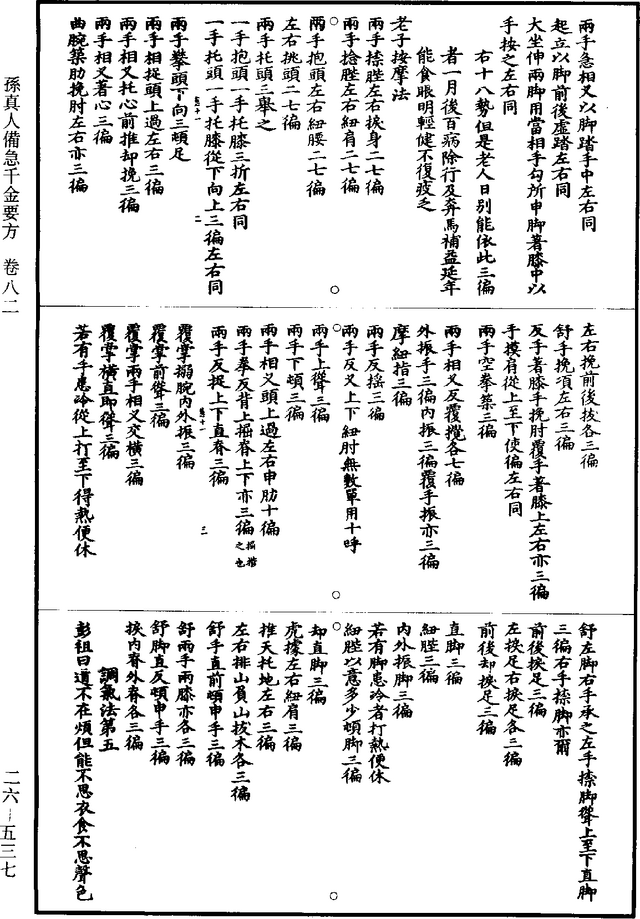 兩手急相叉以脚踏手中左右同
起立以脚前後虛踏左右同
大坐伸兩脚用當相手勾所申脚著膝中以
手按之左右同
右十八勢但是老人日別能依此三徧
者一月後百病除行及奔馬補益延年
能食眼明輕健不復疲乏
老子按摩法
兩手捺䏶左右捩身二七徧
兩手捻䏶左右紐肩二七徧
兩手抱頭左右紐腰二七徧
左右挑頭二七徧
兩手托頭三舉之
一手抱頭一手托膝三折左右同
一手托頭一手托膝從下向上三徧左右同
兩手攀頭下向三頓足
兩手相捉頭上過左右三徧
兩手相叉托心前推却挽三徧
兩手相叉著心三徧
曲腕築肋挽肘左右亦三徧
左右挽前後拔各三徧
舒手挽項左右三徧
反手著膝手挽肘覆手著膝上左右亦三徧
手摸肩從上至下使徧左右同
兩手空拳築三徧
兩手相叉反覆攪各七徧
外振手三徧內振三徧覆手振亦三徧
摩紐指三徧
兩手反搖三徧
兩手反叉上下紐肘無數單用十呼
兩手上聳三徧
兩手下頓三徧
兩手相叉頭上過左右申肋十徧
兩手拳反背上掘脊上下亦三徧掘揩之也
兩手反捉上下直脊三徧
覆掌搦腕內外振三徧
覆掌前聳三徧
覆掌兩手相叉交橫三徧
覆掌橫直即聳三徧
若有手患冷從上打至下得熱便休
舒左脚右手承之左手捺脚聳上至下直脚
三徧右手捺脚亦爾
前後捩足三徧
左捩足右捩足各三徧
前後却捩足三徧
直脚三徧
紐䏶三徧
內外振脚三徧
若有脚患冷者打熱便休
紐䏶以意多少頓脚三徧
却直脚三徧
虎據左右紐肩三徧
推天托地左右三徧
左右排山負山拔木各三徧
舒手直前頓申手三徧
舒兩手兩膝亦各三徧
舒脚直反頓申手三徧
捩內脊外脊各三徧
調氣法第五
彭祖曰道不在煩但能不思衣食不思聲色
孫真人備急千金要方 卷八二
二六—五三七